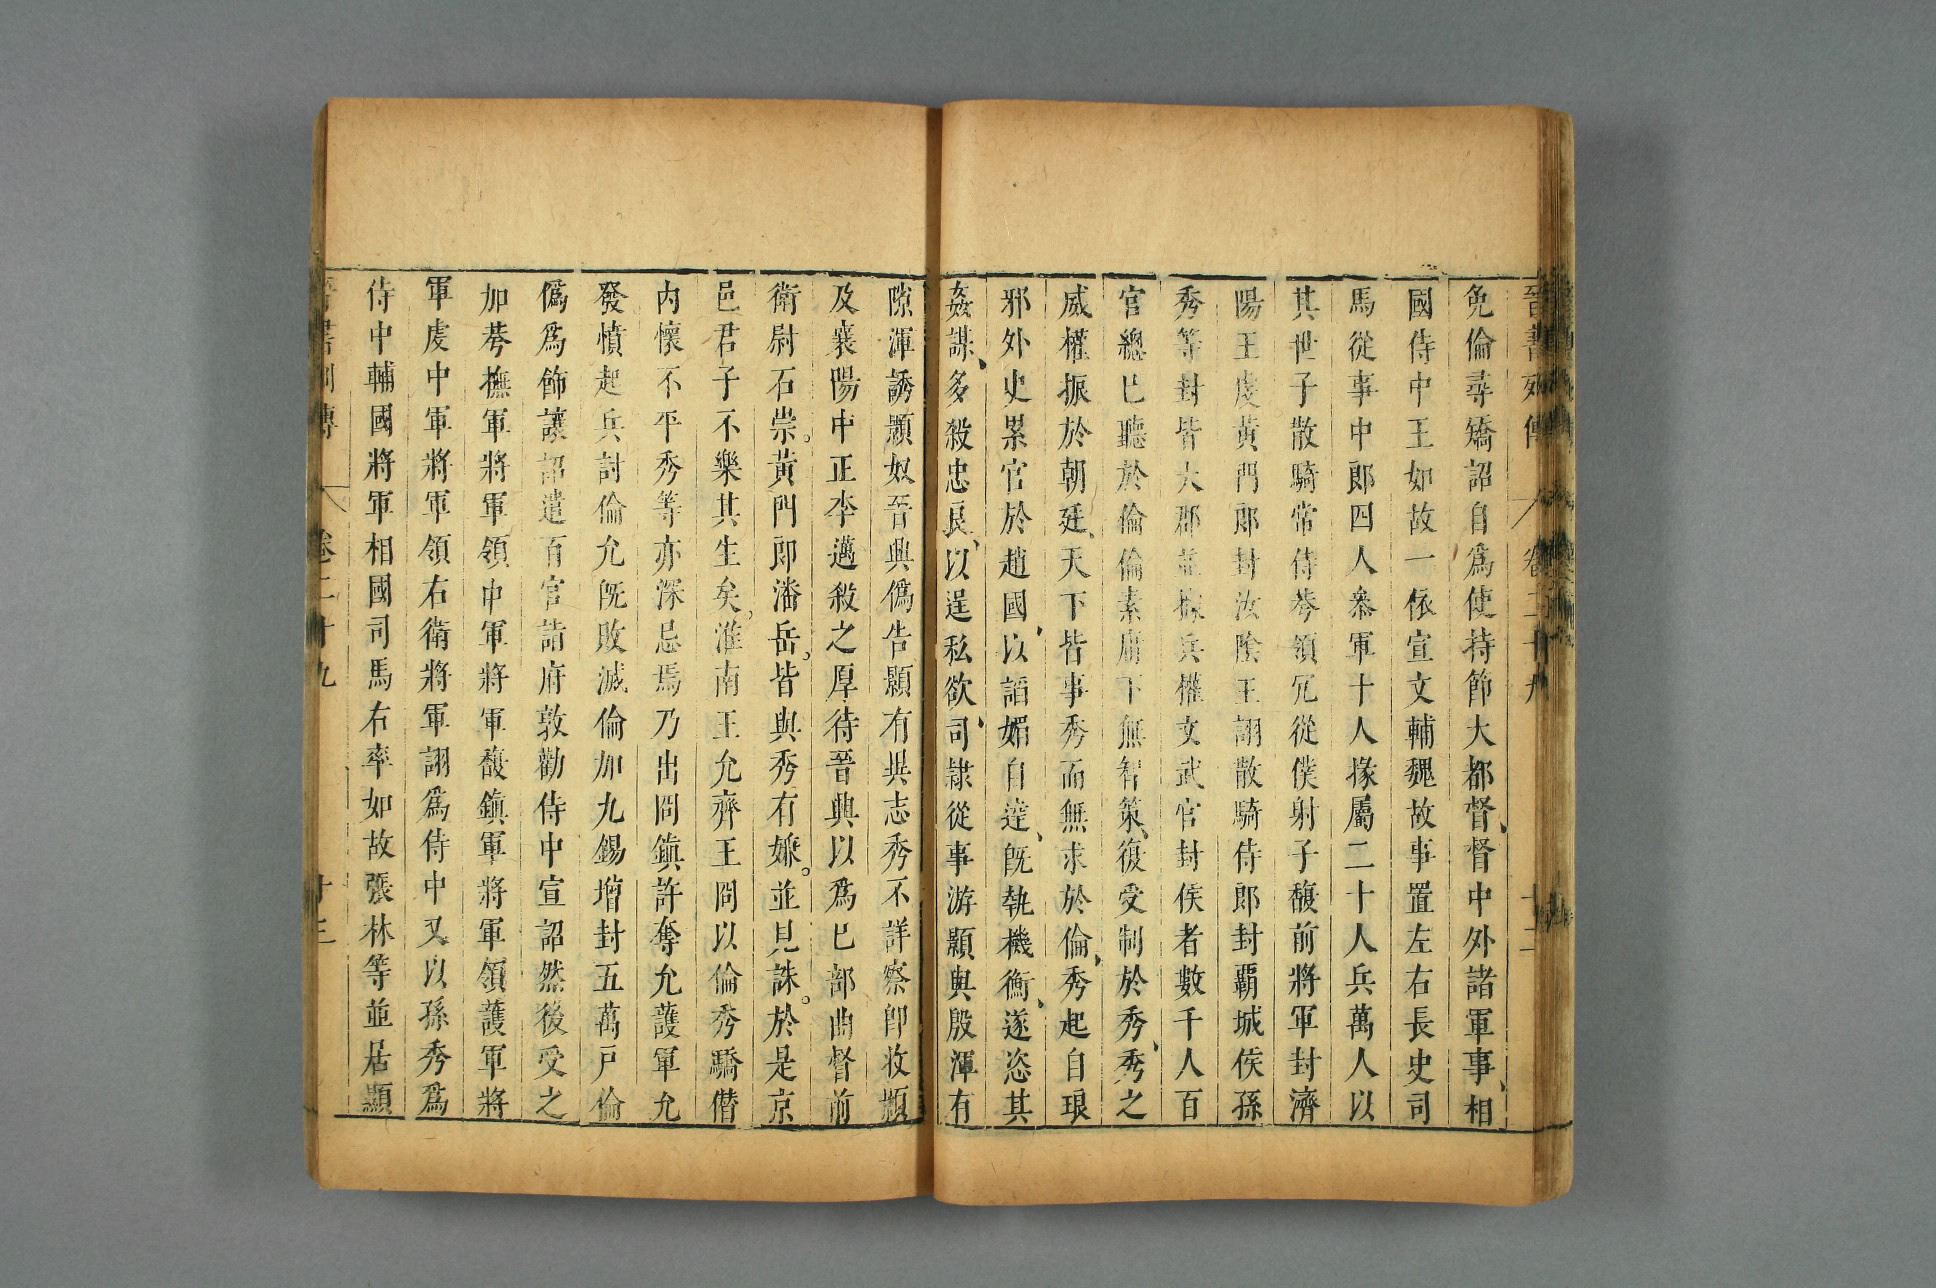 晉書列傳 卷二十九 十二
免倫尋矯詔自爲使持節大都督、督中外諸軍事、相
國侍中王如故一依宣文輔魏故事置左右長史司
馬從事中郎四人叅軍十人掾屬二十人兵萬人以
其世子散騎常侍荂領冗從僕射子馥前將軍封濟
陽王虔黃門郎封汝陰王詡散騎侍郎封覇城侯孫
秀等封皆大郡並據兵權文武官封侯者數千人百
官總已聽於倫倫素庸下無智策、復受制於秀、秀之
威權振於朝廷、天下皆事秀而無求於倫、秀起自琅
邪外史累官於趙國、以謟媚自達、旣執機衡、遂恣其
姦謀、多殺忠良、以逞私欲、司隸從事游顥與殷渾有
隙渾誘顥奴晉興僞告顥有異志秀不詳察卽收顥
及襄陽中正李邁殺之厚待晉興以爲已部曲督前
衛尉石崇。黃門郎潘岳。皆與秀有嫌。並見誅。於是京
邑君子不樂其生矣。淮南王允齊王冏以倫秀驕僭
內懷不平秀等亦深忌焉乃出冏鎭許奪允護軍允
發憤起兵討倫允旣敗滅倫加九錫增封五萬戶倫
僞爲飾讓詔遣百官詣府敦勸侍中宣詔然後受之
加荂撫軍將軍領中軍將軍馥鎭軍將軍領護軍將
軍虔中軍將軍領右衛將軍詡爲侍中又以孫秀爲
侍中輔國將軍相國司馬右率如故張林等並居顯
晉書列傳 卷二十九 十三